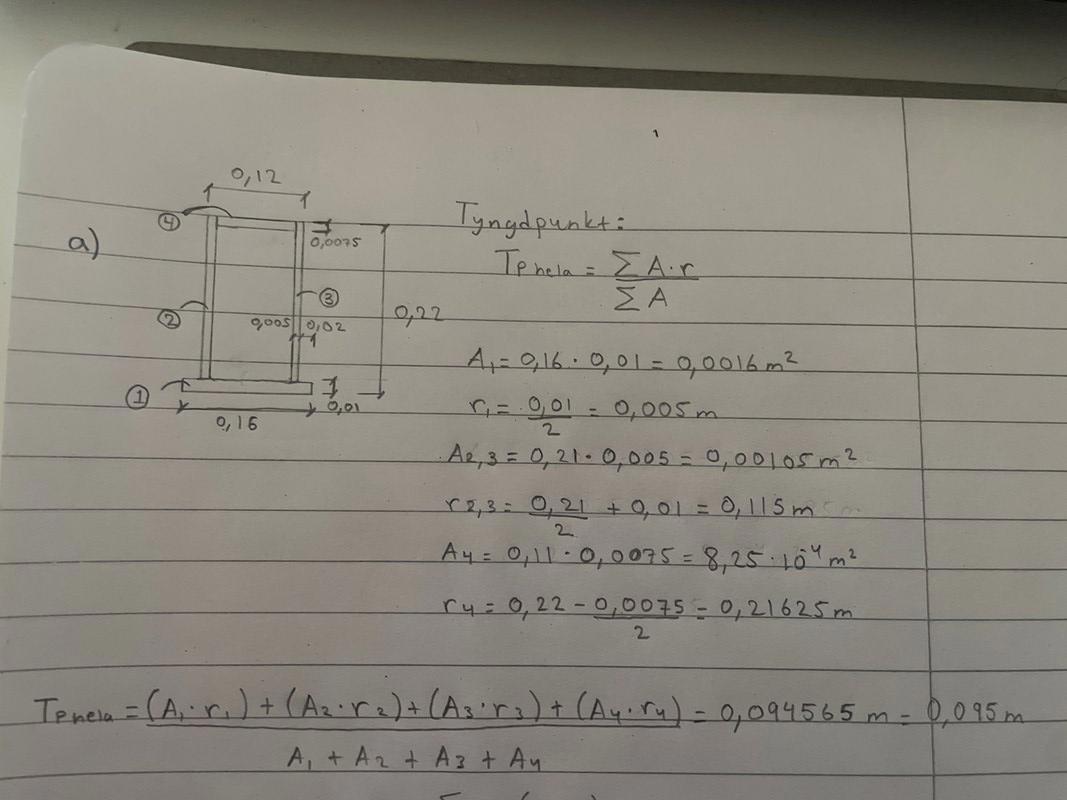 a)
0,12
④
0,0075
③
②
0,005 0,02
0,22
①
0,01
0,16
Tyngdpunkt:
Tp hela = ΣA·r / ΣA
A₁ = 0,16 · 0,01 = 0,0016 m²
r₁ = 0,01 / 2 = 0,005 m
A₂,₃ = 0,21 · 0,005 = 0,00105 m²
r₂,₃ = 0,21 / 2 + 0,01 = 0,115 m
A₄ = 0,11 · 0,0075 = 8,25 · 10⁻⁴ m²
r₄ = 0,22 - 0,0075 / 2 = 0,21625 m
Tp hela = (A₁·r₁) + (A₂·r₂) + (A₃·r₃) + (A₄·r₄) / A₁ + A₂ + A₃ + A₄ = 0,094565 m = 0,095 m